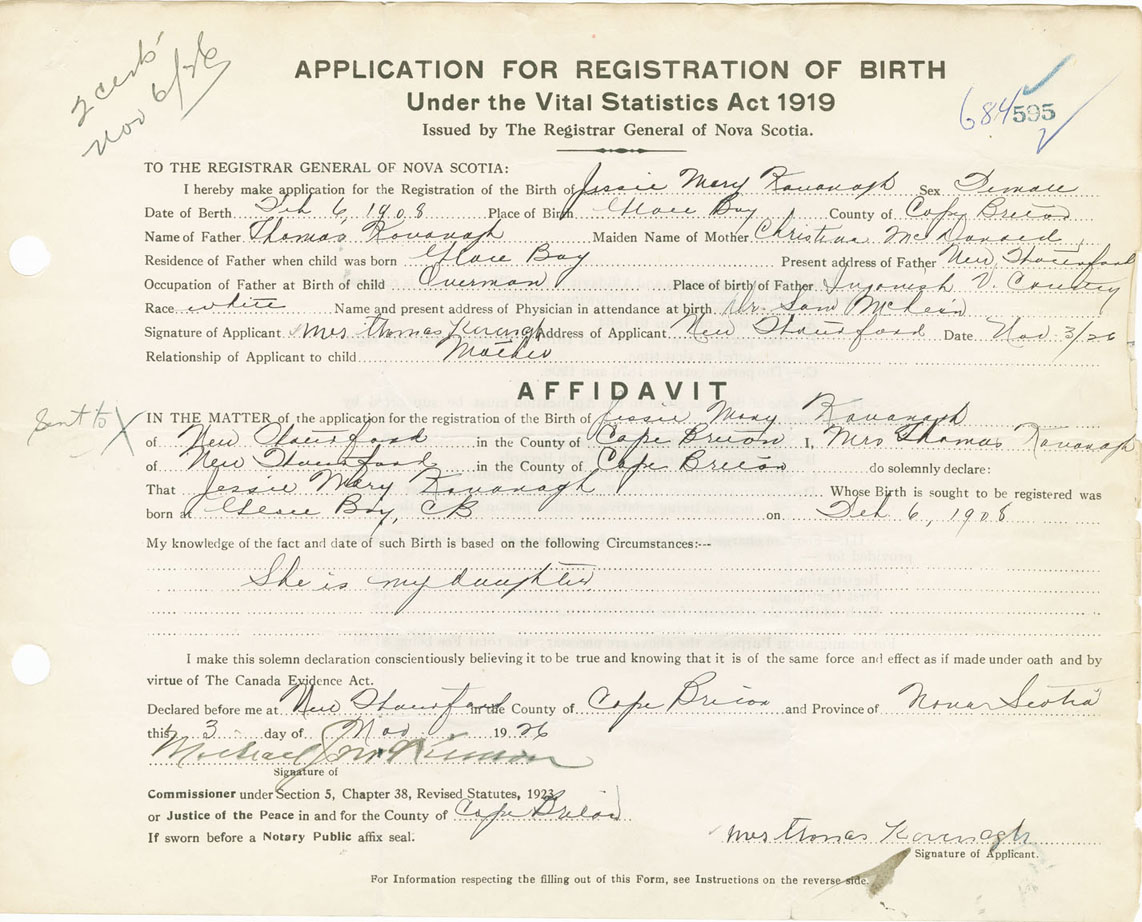 2 certs
Nov 6/26
APPLICATION FOR REGISTRATION OF BIRTH
Under the Vital Statistics Act 1919
684 595
Issued by The Registrar General of Nova Scotia.
TO THE REGISTRAR GENERAL OF NOVA SCOTIA:
I hereby make application for the Registration of the Birth of Jessie Mary Kavanagh Sex Female
Date of Berth Feb 6, 1908 Place of Birth Glace Bay County of Cape Breton
Name of Father Thomas Kavanagh Maiden Name of Mother Christina McDonald
Residence of Father when child was born Glace Bay Present address of Father New
Occupation of Father at Birth of child Overman Place of birth of Father Ingonish V. County
Race white Name and present address of Physician in attendance at birth Dr. Sam
Signature of Applicant Mrs Thomas Address of Applicant New Date Nov 3/26
Relationship of Applicant to child Mother
AFFIDAVIT
Sent to X
IN THE MATTER of the application for the registration of the Birth of Jessie Mary Kavanagh
of New in the County of Cape Breton I, Mrs Thomas Kavanagh
of New in the County of Cape Breton do solemnly declare:
That Jessie Mary Kavanagh Whose Birth is sought to be registered was
born at Glace Bay, CB on Feb 6, 1908
My knowledge of the fact and date of such Birth is based on the following Circumstances:--
She is my daughter
I make this solemn declaration conscientiously believing it to be true and knowing that it is of the same force and effect as if made under oath and by
virtue of The Canada Evidence Act.
Declared before me at New in the County of Cape Breton and Province of Nova Scotia
this 3 day of Nov 1926
Michael J McKinnon
Signature of
Commissioner under Section 5, Chapter 38, Revised Statutes, 1923
or Justice of the Peace in and for the County of Cape Breton
If sworn before a Notary Public affix seal.
Mrs Thomas Kavenagh
Signature of Applicant.
For Information respecting the filling out of this Form, see Instructions on the reverse side.